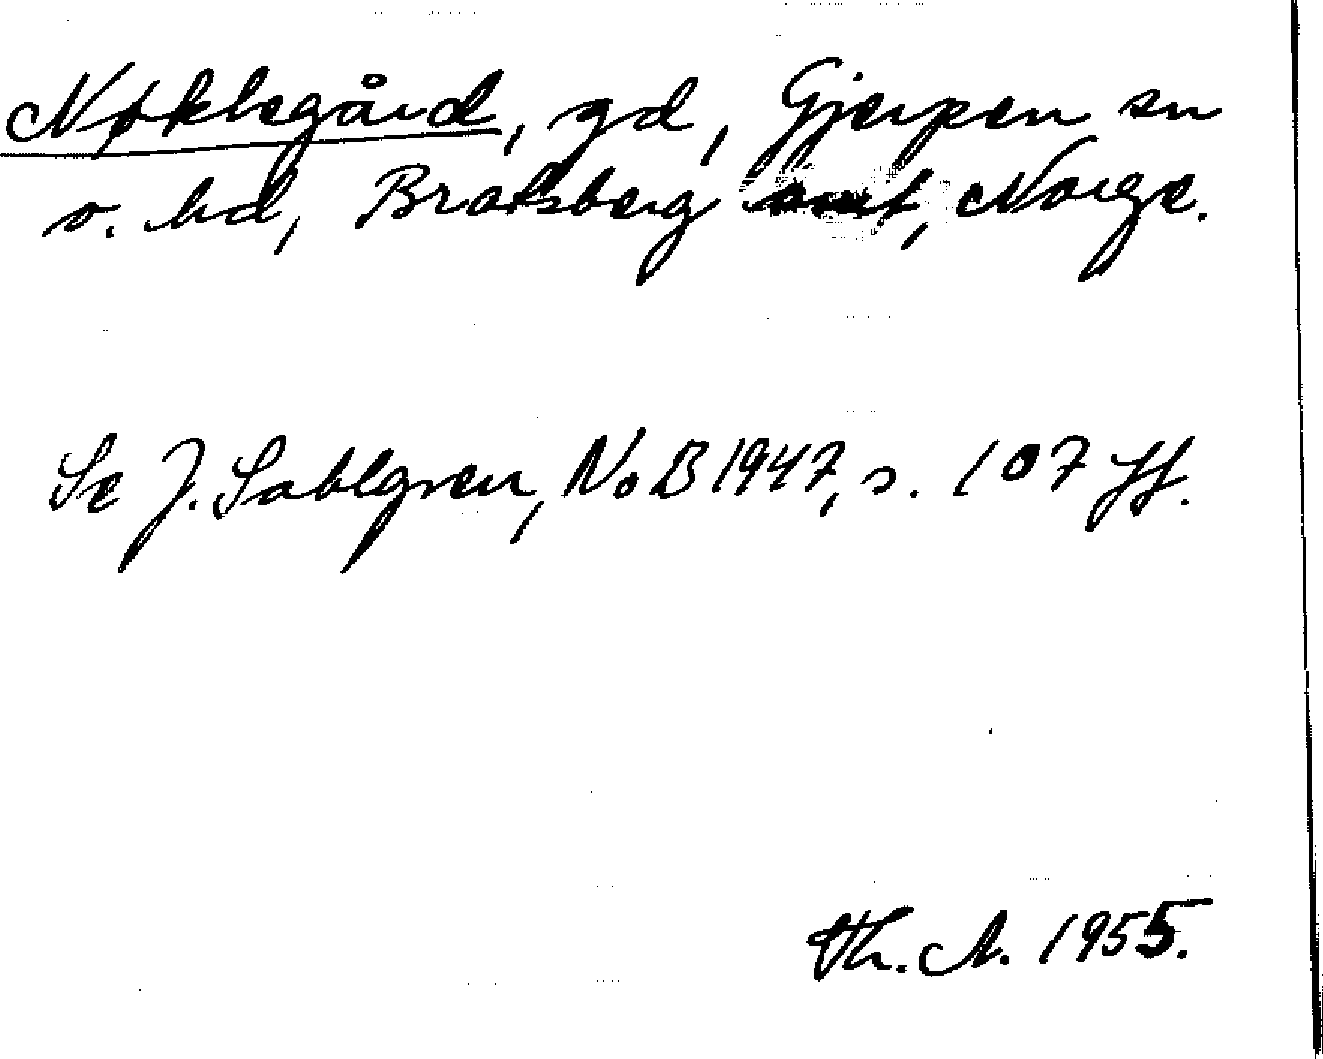 Nøklegård, gd, Gjerpen sn
o. hd, Bratsberg amt, Norge.
Se J. Sahlgren, NoB 1947, s. 107 ff.
Th. A. 1955.